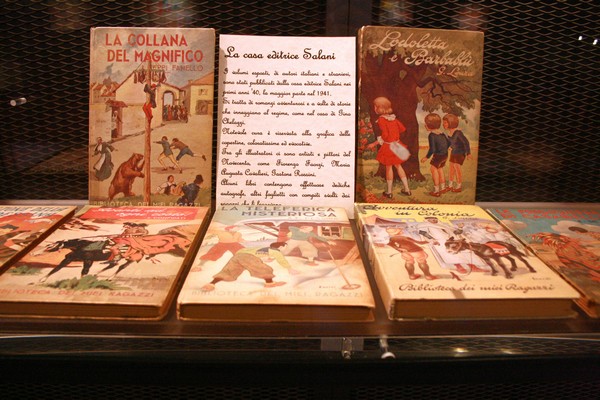 LA COLLANA
DEL MAGNIFICO
La casa editrice Salani
I volumi esposti, di autori italiani e stranieri,
sono stati pubblicati dalla casa editrice Salani nei
primi anni '40, la maggior parte nel 1941.
Si tratta di romanzi avventurosi e a volte di storie
che inneggiano al regime, come nel caso di Gino
Chelazzi.
Notevole cura è riservata alla grafica delle
copertine, coloratissime ed evocative.
Tra gli illustratori vi sono artisti e pittori del
Novecento, come Fiorenzo Faorzi, Maria
Augusta Cavalieri, Gastone Rossini.
Alcuni libri contengono affettuose dediche
autografe, altri foglietti con compiti svolti dai
Lodoletta
e Barbablù
BIBLIOTECA DEI MIEI RAGAZZI
LA TELEFERICA
MISTERIOSA
BIBLIOTECA DEI MIEI RAGAZZI
Avventura in Colonia
Biblioteca dei miei Ragazzi